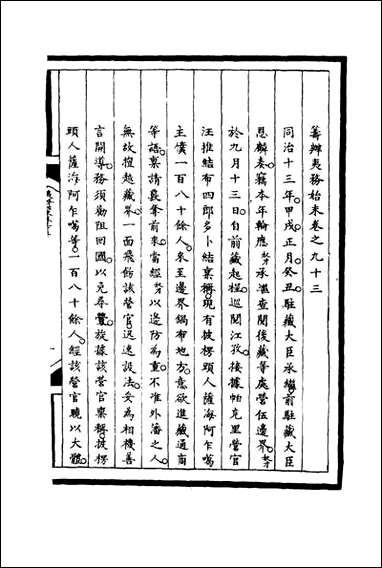 籌辦夷務始末卷之九十三
同治十三年甲戌正月癸丑駐藏大臣承繼前駐藏大臣
恩麟奏竊本年輪應奴才承繼查閱後藏等處營伍邊界奴才
於九月十三日自前藏起程巡閱江孜後據帕克里營官
汪推結布四郎多卜結稟稱現有披楞頭人薩海阿乍噶
主僕一百八十餘人來至邊界錫布地方意欲進藏通商
等語稟請裁奪前來當經奴才以邊防為重不准外藩之人
無故擅越藏界一面飛飭該營官迅速設法妥為相機善
言開導務須勸阻回國以免尋釁旋據該營官稟稱披楞
頭人薩海阿乍噶等一百八十餘人經該營官曉以大體